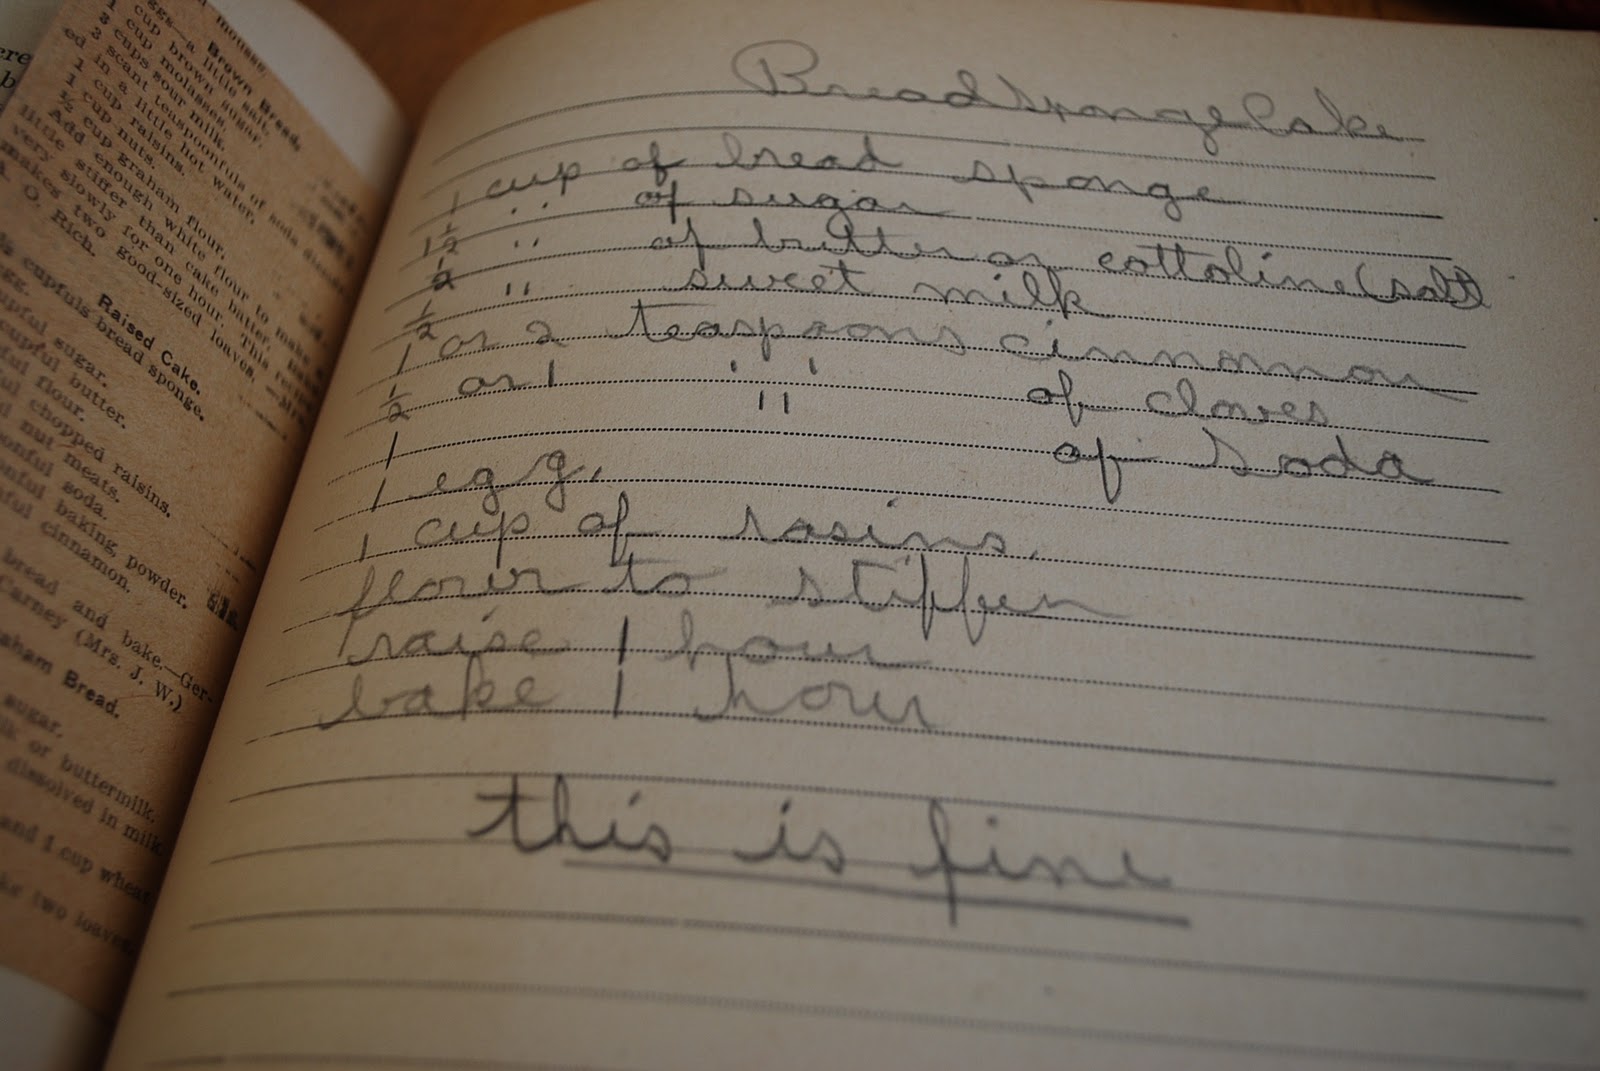 mousse.
eggs—a little salt.
Brown Bread.
1 cup brown sugar.
1 cup molasses.
3 cups sour milk.
3 scant teaspoonfuls of soda
ed in a little hot water.
1 cup raisins.
1 cup nuts.
½ cup graham flour.
Add enough white flour to make a
little stiffer than cake batter.
very slowly for one hour. This
makes two good-sized loaves.
O. Rich.
Raised Cake.
cupfuls bread sponge.
egg.
cupful sugar.
cupful butter.
flour.
chopped raisins.
nut meats.
soda.
baking powder.
cinnamon.
bread and bake.—Ger-
Carney (Mrs. J. W.)
Bread.
sugar.
or buttermilk.
dissolved in milk
and 1 cup wheat
two loaves.
Bread Sponge Cake
1 cup of bread sponge
1½ " of sugar
½ " of butter or cottoline (salt)
½ " sweet milk
1 or 2 teaspoons cinnamon
½ or 1 " of cloves
1 " of soda
1 egg.
1 cup of rasins.
flour to stiffen
raise 1 hour
bake 1 hour
this is fine